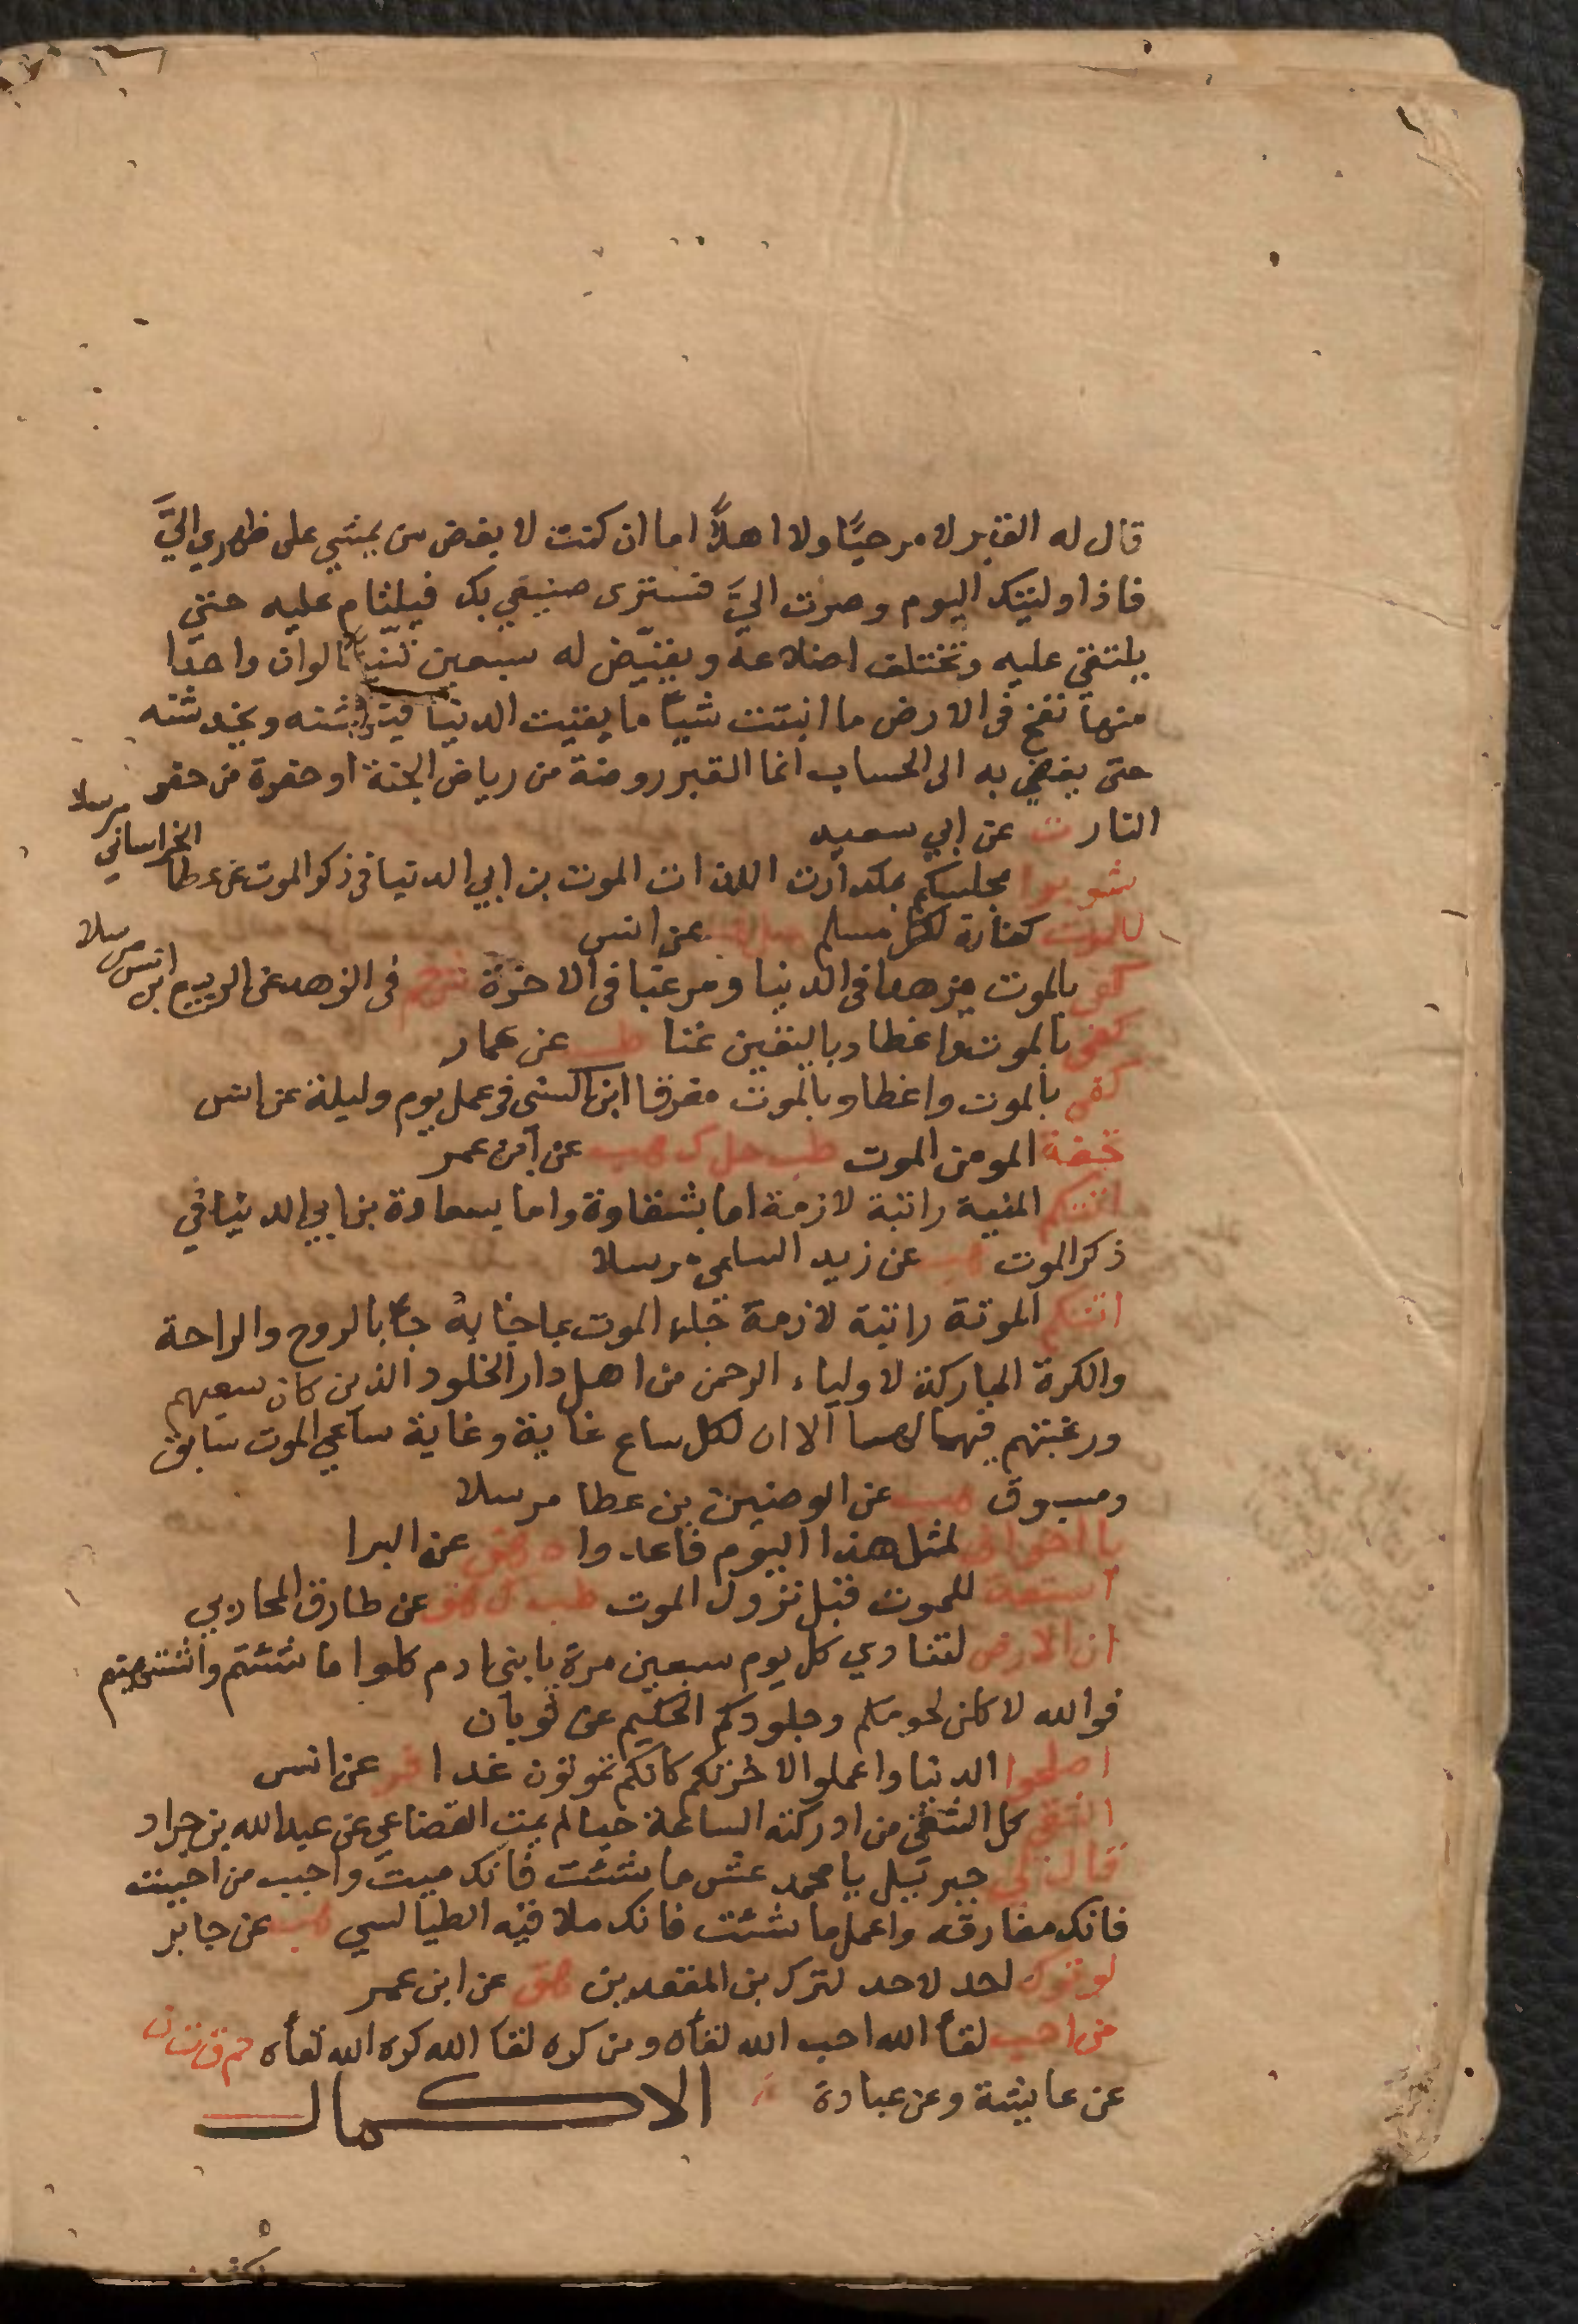 قال له القبر لا مرحبًا ولا اهلًا اما ان كنت لا بغض من يمشي على ظهري اليَّ
فاذا وليتك اليوم وصرت اليَّ فسترى صنيعي بك فيلتام عليه حتى
يلتقى عليه وتختلف اضلاعه ويقيّض له سبعين تنينا لوان واحدا
منها نفخ فى الارض ما انبتت شيأ ما بقيت الدنيا فينهشنه ويخدشنه
حتى يفضي به الى الحساب انما القبر روضة من رياض الجنة او حفرة من حفر
النار ت عن ابي سعيد
شوبوا مجلسكم بمكدرات اللذات الموت بن ابي الدنيا فى ذكر الموت عن عطا الخراساني مرسلا
الموت كفارة لكل مسلم حل هب عن انس
كفى بالموت مزهدا فى الدنيا ومرغبا فى الاخرة ش حم فى الزهد عن الربيع بن انس مرسلا
كفى بالموت واعظا وباليقين غنا طب عن عمار
كفى بالموت واعظا وبالموت مفرقا ابن السنى فى عمل يوم وليلة عن انس
تحفة المومن الموت طب حل ك هب عن ابن عمر
اتتكم المنية راتبة لازمة اما بشقاوة واما بسعادة بن ابي الدنيا في
ذكر الموت هب عن زيد السلمى مرسلا
اتتكم الموتة راتبة لازمة جاء الموت بما جا به جا بالروح والراحة
والكرة المباركة لاولياء الرحمن من اهل دار الخلود الذين كان سعيهم
ورغبتهم فيها لها الا ان لكل ساع غاية وغاية ساعي الموت سابق
ومسبوق هب عن الوضين بن عطا مرسلا
يا اخواني لمثل هذا اليوم فاعدوا ه هق عن البرا
استعد للموت قبل نزول الموت طب ك هق عن طارق المحاربي
ان الارض لتنادي كل يوم سبعين مرة يا بنى ادم كلوا ما شئتم واشتهيتم
فوالله لاكلن لحومكم وجلودكم الحكيم عن ثوبان
اصلحوا الدنيا واعملوا لاخرتكم كانكم تموتون غدا فر عن انس
الشقى كل الشقى من ادركته الساعة حيا لم يمت القضاعي عن عبد الله بن جراد
قال لي جبرئيل يا محمد عش ما شئت فانك ميت واحبب من احببت
فانك مفارقه واعمل ما شئت فانك ملاقيه الطيالسي هب عن جابر
لو ترك احد لاحد لترك بن المقعدين هق عن ابن عمر
من احب لقأ الله احب الله لقأه ومن كره لقا الله كره الله لقأه حم ق ت ن
عن عايشة وعن عبادة
الاكمال